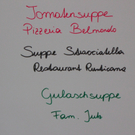 Tomatensuppe
Pizzeria Belmondo
Suppe Stracciatella
Restaurant Rusticana
Gulaschsuppe
Fam. Jub